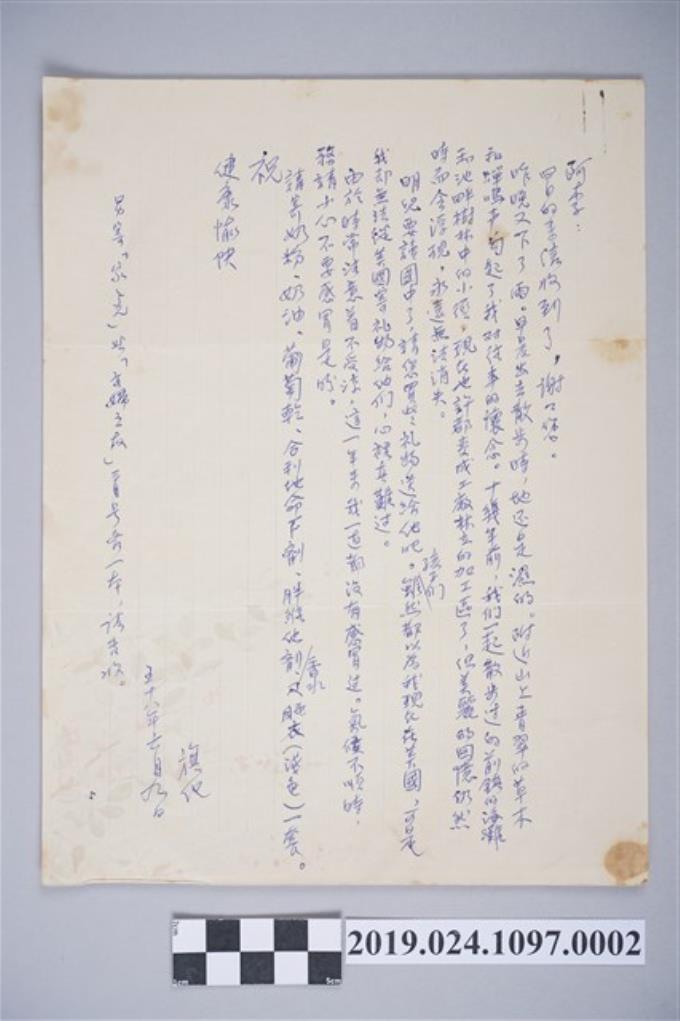 阿李：
四日的來信收到了，謝謝您。
昨晚又下了雨。早晨出去散步時，地還是濕的。附近山上青翠的草木
和蟬鳴声，勾起了我对往事的懷念。十幾年前，我們一起散步过的前鎮的海灘
和池畔樹林中的小徑，現在也許都变成工廠林立的加工區了，但美麗的回憶仍然
時而会浮現，永遠無法消失。
明兒要讀國中了，請您買些礼物送給他吧。雖然孩子們都以為我現在在美國，可是
我却無法從美國寄礼物給他們，心裡真難过。
由於時常注意着不受涼，這一年來我一直都沒有感冒过。氣候不順時，
務請小心不要感冒是盼。
請寄奶粉、奶油、葡萄乾、合利他命F劑、胖維他劑、香水及睡衣（淺色）一套。
祝
健康愉快
旗化
五十八年六月九日
另寄「家」與「主婦之友」一月号各一本，請查收。
2019.024.1097.0002
5cm